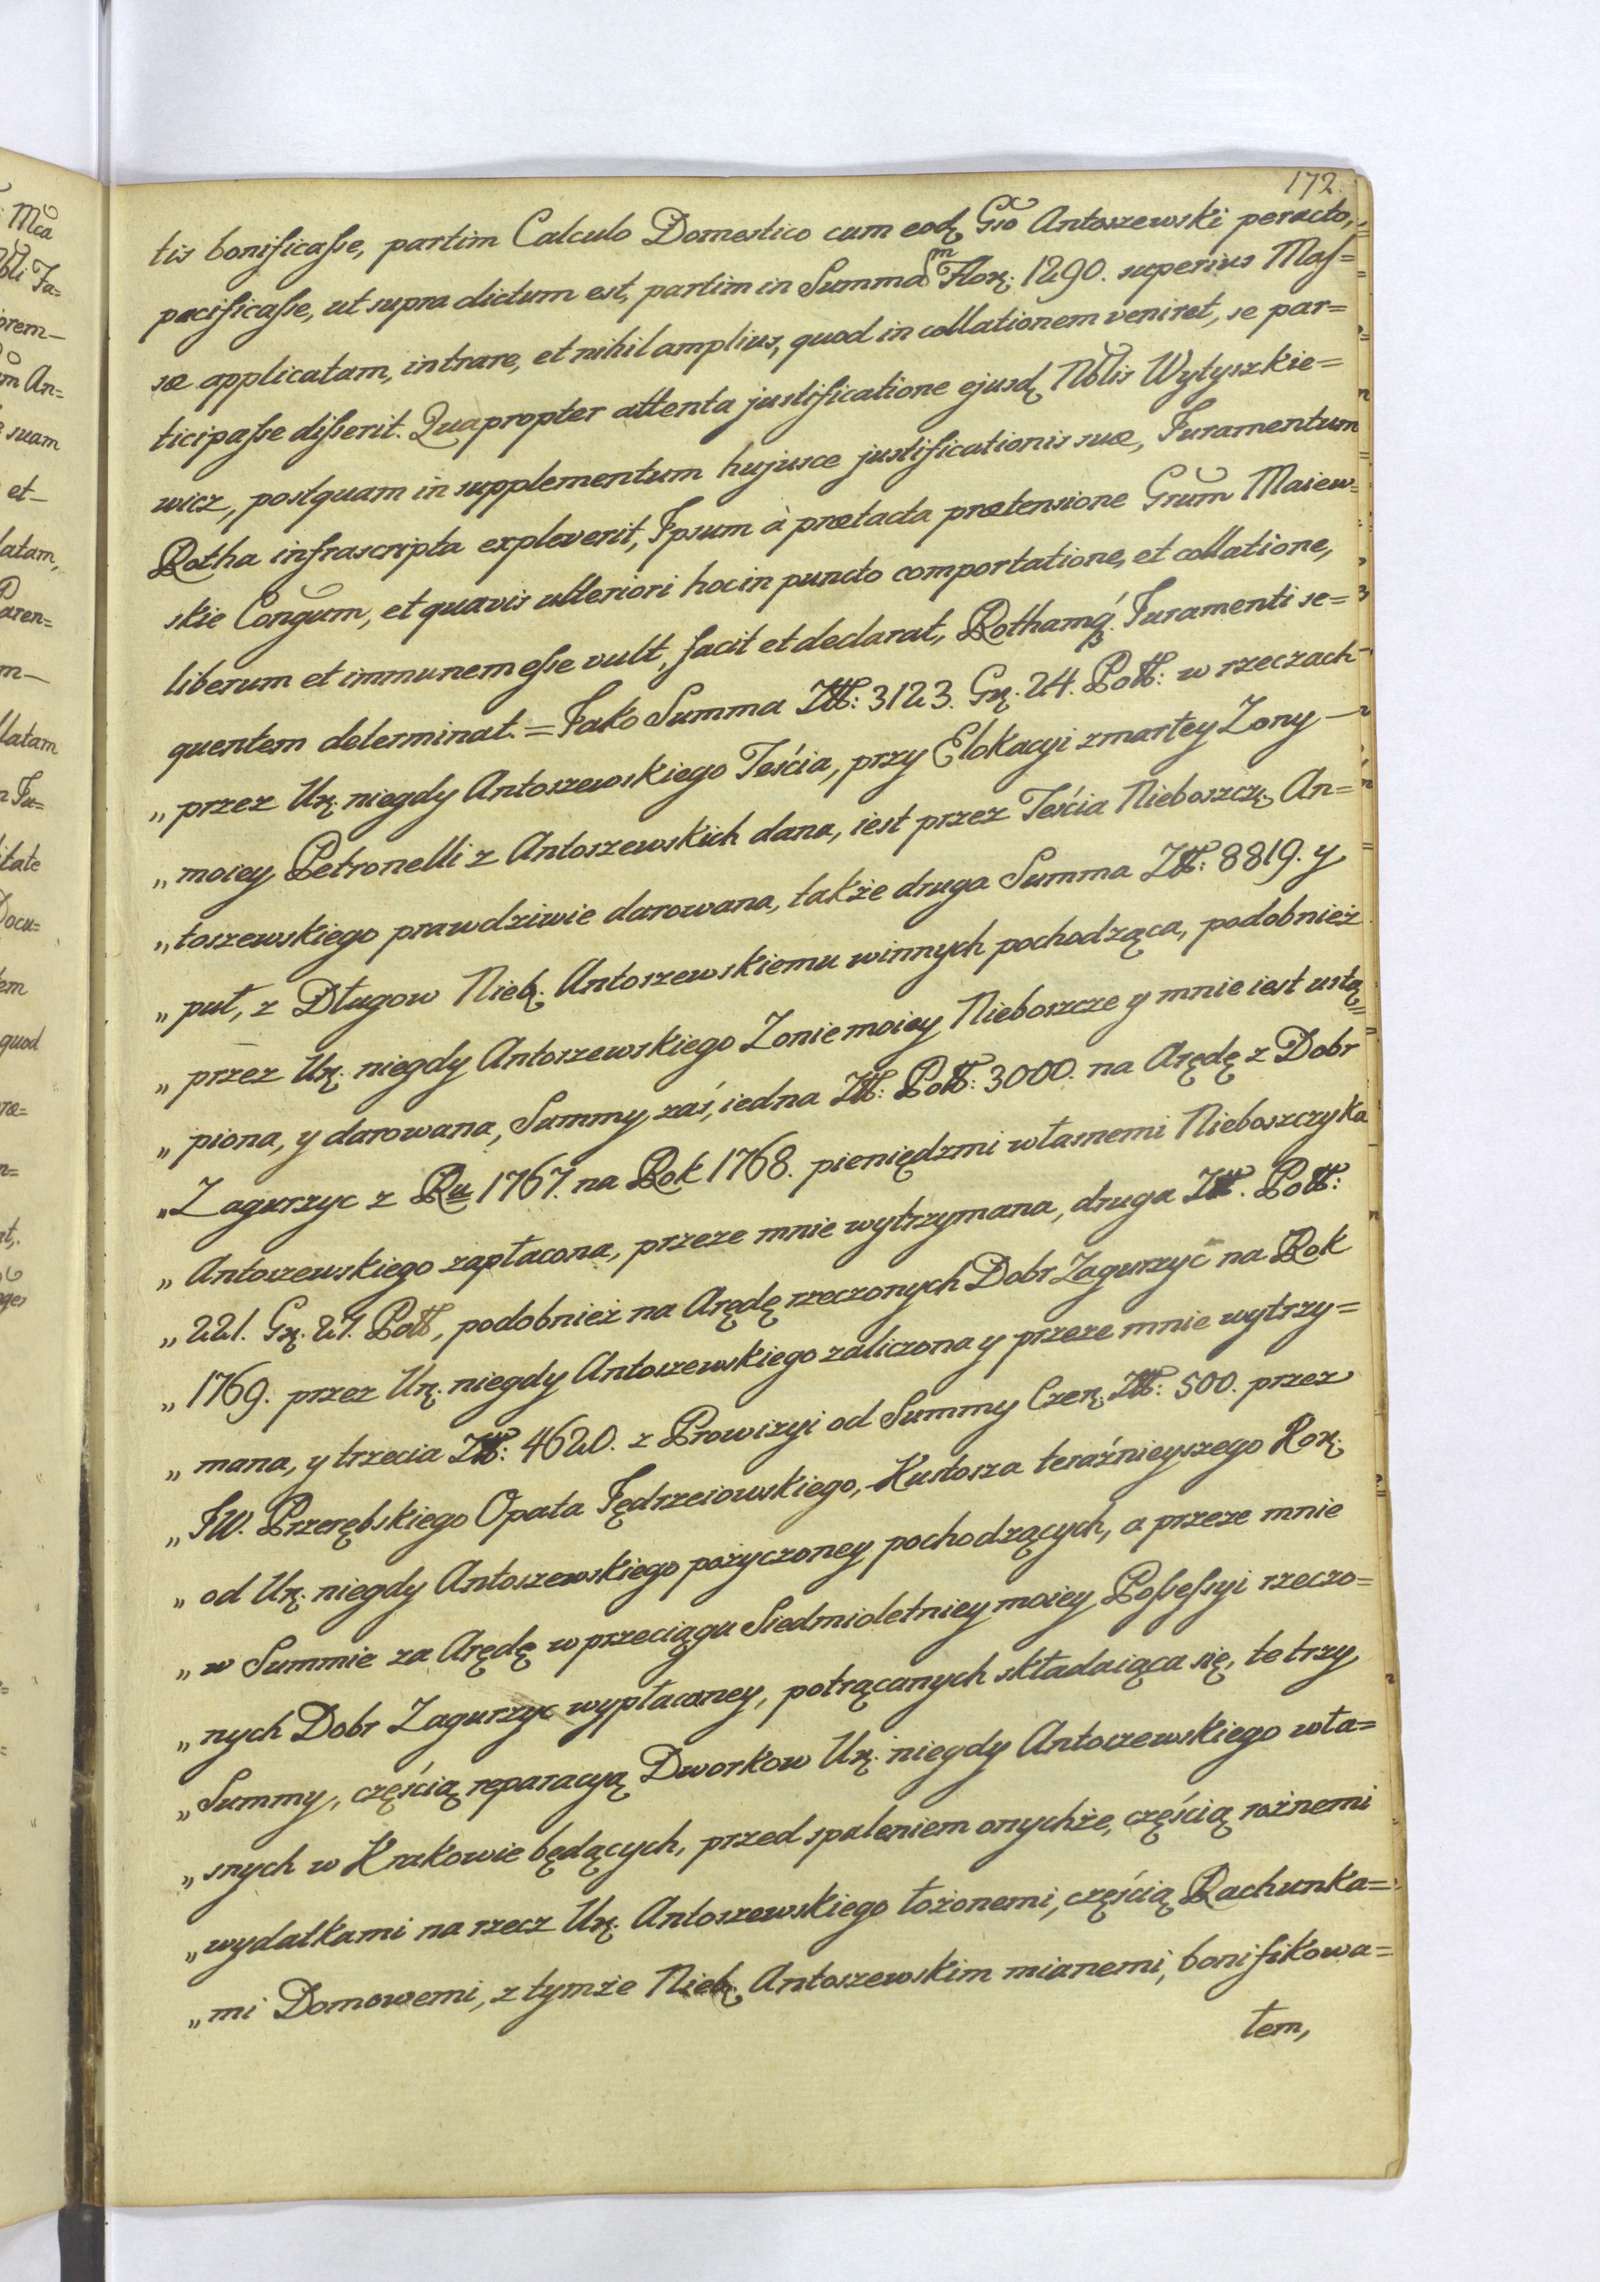 172.
tis bonificasse, partim Calculo Domestico cum eodę Gso Antoszewski peracto,
pacificasse, ut supra dictum est, partim in Summam Florę: 1290. superius Mas=
sæ applicatam, intrare, et nihil amplius, quod in collationem veniret, se par=
ticipasse disserit. Quapropter attenta justificatione ejusdę Nblis Wytyszkie=
wicz, postquam in supplementum hujusce justificationis suæ, Juramentum
Rotha infrascripta expleverit, Ipsum à prætacta prætensione Grum Maiew=
skie Congum, et quavis ulteriori hoc in puncto comportatione, et collatione,
liberum et immunem esse vult, facit et declarat, Rothamq. Juramenti se=
quentem determinat. = Jako Summa Złł: 3123. Gę. 24. Poll: w rzeczach
„ przez Urę. niegdy Antoszewskiego Teścia, przy Elokacyi zmarłey Zony —
„ moiey Petronelli z Antoszewskich dana, iest przez Teścia Nieboszczę. An=
„ toszewskiego prawdziwie darowana, także druga Summa Złł: 8819. y
„ puł, z Długow Niebę. Antoszewskiemu winnych pochodząca, podobnież
„ przez Urę. niegdy Antoszewskiego Zonie moiey Nieboszcze y mnie iest ustą=
„ piona, y darowana, Summy zaś, iedna Złł: Poll: 3000. na Arędę z Dobr
„ Zagurzyc z Ru 1767. na Rok 1768. pieniędzmi własnemi Nieboszczyka
„ Antoszewskiego zapłacona, przeze mnie wytrzymana, druga Złł. Poll:
„ 221. Gę. 27. Poll, podobnież na Arędę rzeczonych Dobr Zagurzyc na Rok
„ 1769. przez Urę. niegdy Antoszewskiego zaliczona y przeze mnie wytrzy=
„ mana, y trzecia Złł: 4620. z Prowizyi od Summy Czerę. Złł: 500. przez
„ JW. Przerębskiego Opata Jędrzeiowskiego, Kustosza teraźnieyszego Korę.
„ od Urę. niegdy Antoszewskiego pożyczoney pochodzących, a przeze mnie
„ w Summie za Arędę w przeciągu Siedmioletniey moiey Possessyi rzeczo=
„ nych Dobr Zagurzyc wypłaconey, potrącanych składaiąca się, te trzy
„ Summy, częścią reparacyą Dworkow Urę. niegdy Antoszewskiego wła=
„ snych w Krakowie będących, przed spaleniem onychże, częścią rożnemi
„ wydatkami na rzecz Urę. Antoszewskiego łożonemi, częścią Rachunka=
„ mi Domowemi, z tymże Niebę. Antoszewskim mianemi, bonifikowa=
łem,